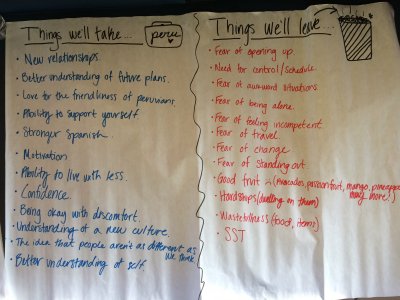 Things we'll take...
peru
• New relationships.
• Better understanding of future plans.
• Love for the friendliness of peruvians
• Ability to support yourself
• Stronger Spanish
• Motivation
• Ability to live with less.
• Confidence
• Being okay with discomfort.
• Understanding of a new culture.
• The idea that people aren't as different as
we think
• Better understanding of self.
Things we'll leave...
• Fear of opening up
• Need for control/schedule
• Fear of awkward situations
• Fear of being alone
• Fear of feeling incompetent
• Fear of travel
• Fear of change
• Fear of standing out
• Good fruit :( (Avacados, passionfruit, mango, pineapple
many more!)
• Hardships (dwelling on them)
• Wastefullness (food, items)
• SST